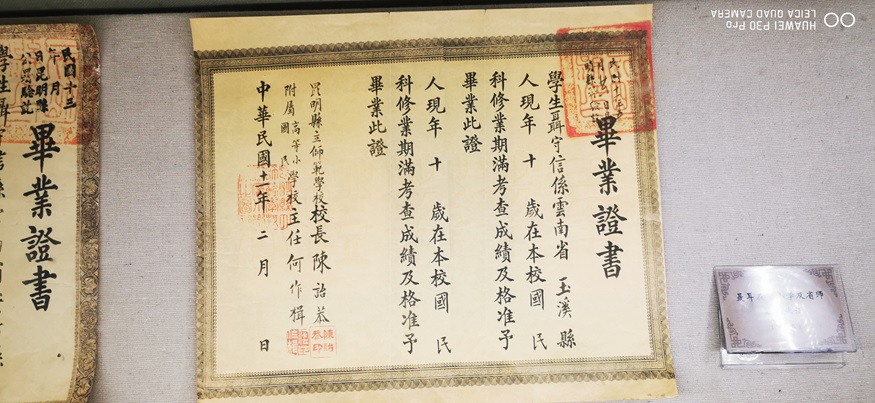 畢業證書
學生聶守信係雲南省 玉溪縣
人現年 十 歲在本校國 民
科修業期滿考查成績及格准予
畢業此證
人現年 十 歲在本校國 民
科修業期滿考查成績及格准予
畢業此證
昆明縣立師範學校校長陳詒恭
附屬高等小國民學校主任何作楫
中華民國十一年二月 日
民國十三
年 月
日昆明縣
公署驗訖
畢業證書
HUAWEI P30 Pro
LEICA QUAD CAMERA